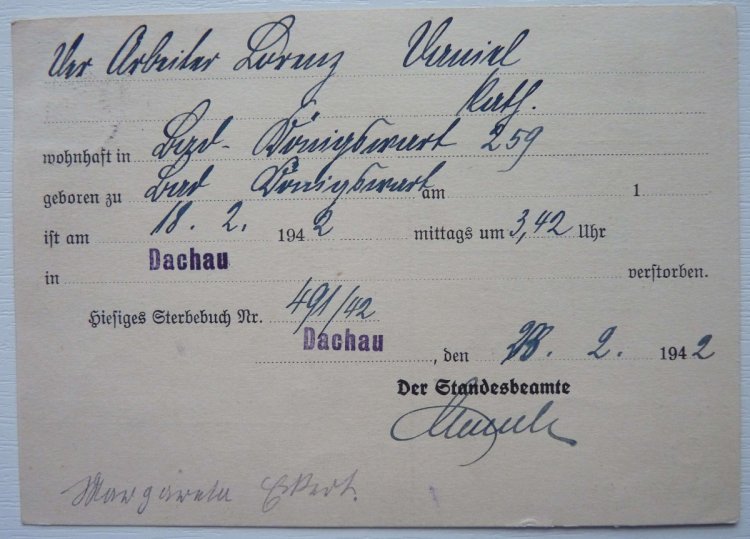 Der Arbeiter Lorenz Daniel
kath.
wohnhaft in Bad-Königswart 259
geboren zu Bad Königswart am 1
ist am 18. 2. 1942 mittags um 3,42 Uhr
in Dachau verstorben.
Hiesiges Sterbebuch Nr. 491/42
Dachau, den 28. 2. 1942
Der Standesbeamte
Margareta Eckert.